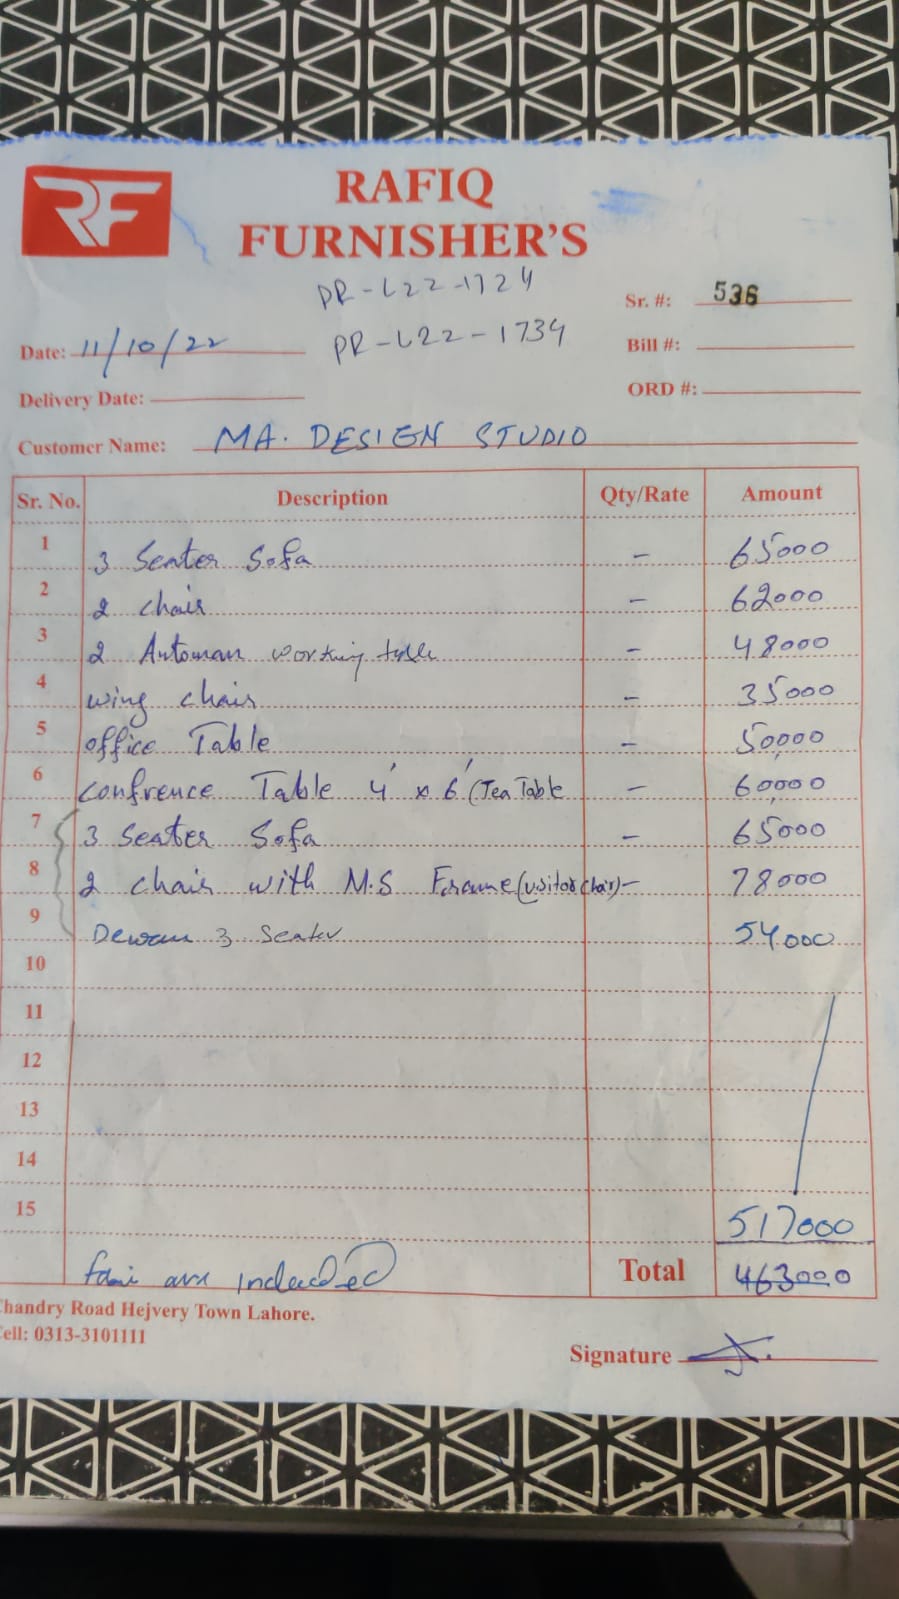 RF
RAFIQ
FURNISHER'S
PR-L22-1724
PR-L22-1734
Sr. #: 536
Date: 11/10/22
Bill #:
Delivery Date:
ORD #:
Customer Name: MA. DESIGN STUDIO
Sr. No. Description Qty/Rate Amount
1 3 Seater Sofa - 65000
2 2 chair - 62000
3 2 Automan working table - 48000
4 wing chair - 35000
5 office Table - 50,000
6 Confrence Table 4' x 6' (Tea Table - 60,000
7 3 Seater Sofa - 65000
8 2 chair with M.S Frame (visitor chair) - 78000
9 Dewan 3 Seater 54000
10
11
12
13
14
15 517000
included
Total 463000
Chandry Road Hejvery Town Lahore.
Cell: 0313-3101111
Signature